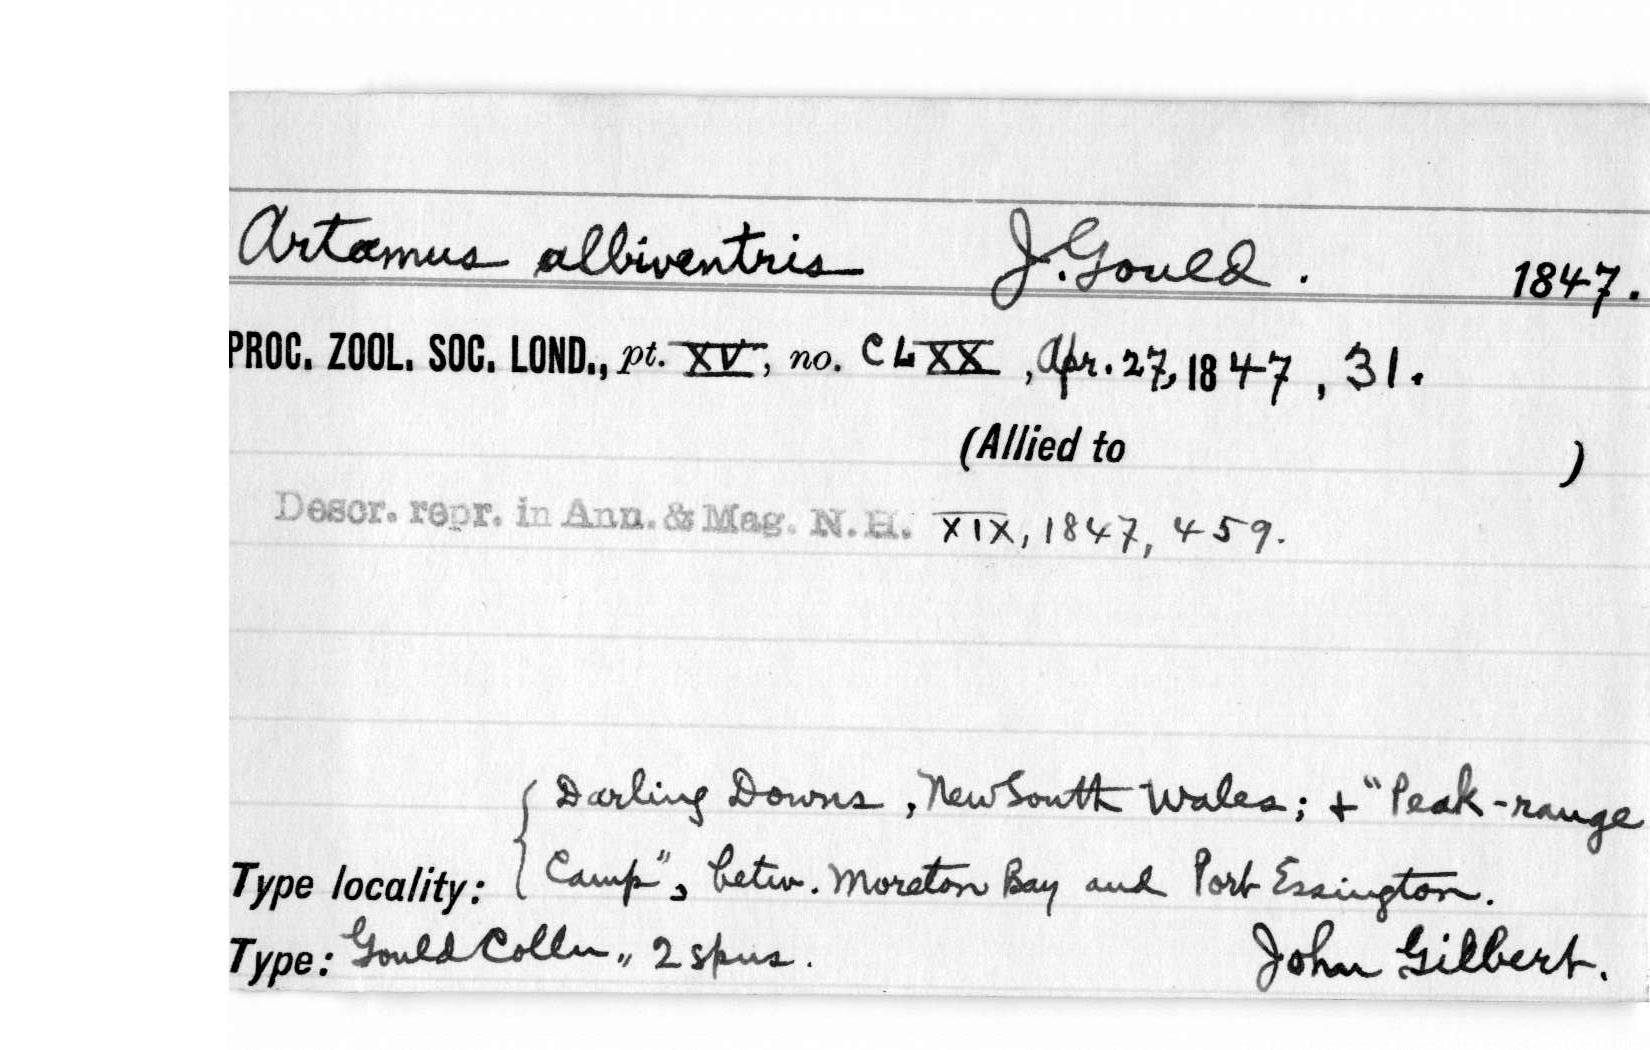 Artamus albiventris J. Gould. 1847.
PROC. ZOOL. SOC. LOND., pt. XV, no. CLXX, Apr. 27, 1847, 31.
(Allied to )
Descr. repr. in Ann. & Mag. N.H. XIX, 1847, 459.
Darling Downs, New South Wales; + "Peak-range
Type locality: { Camp", betw. Moreton Bay and Port Essington.
Type: Gould Colln,, 2 spns. John Gilbert.